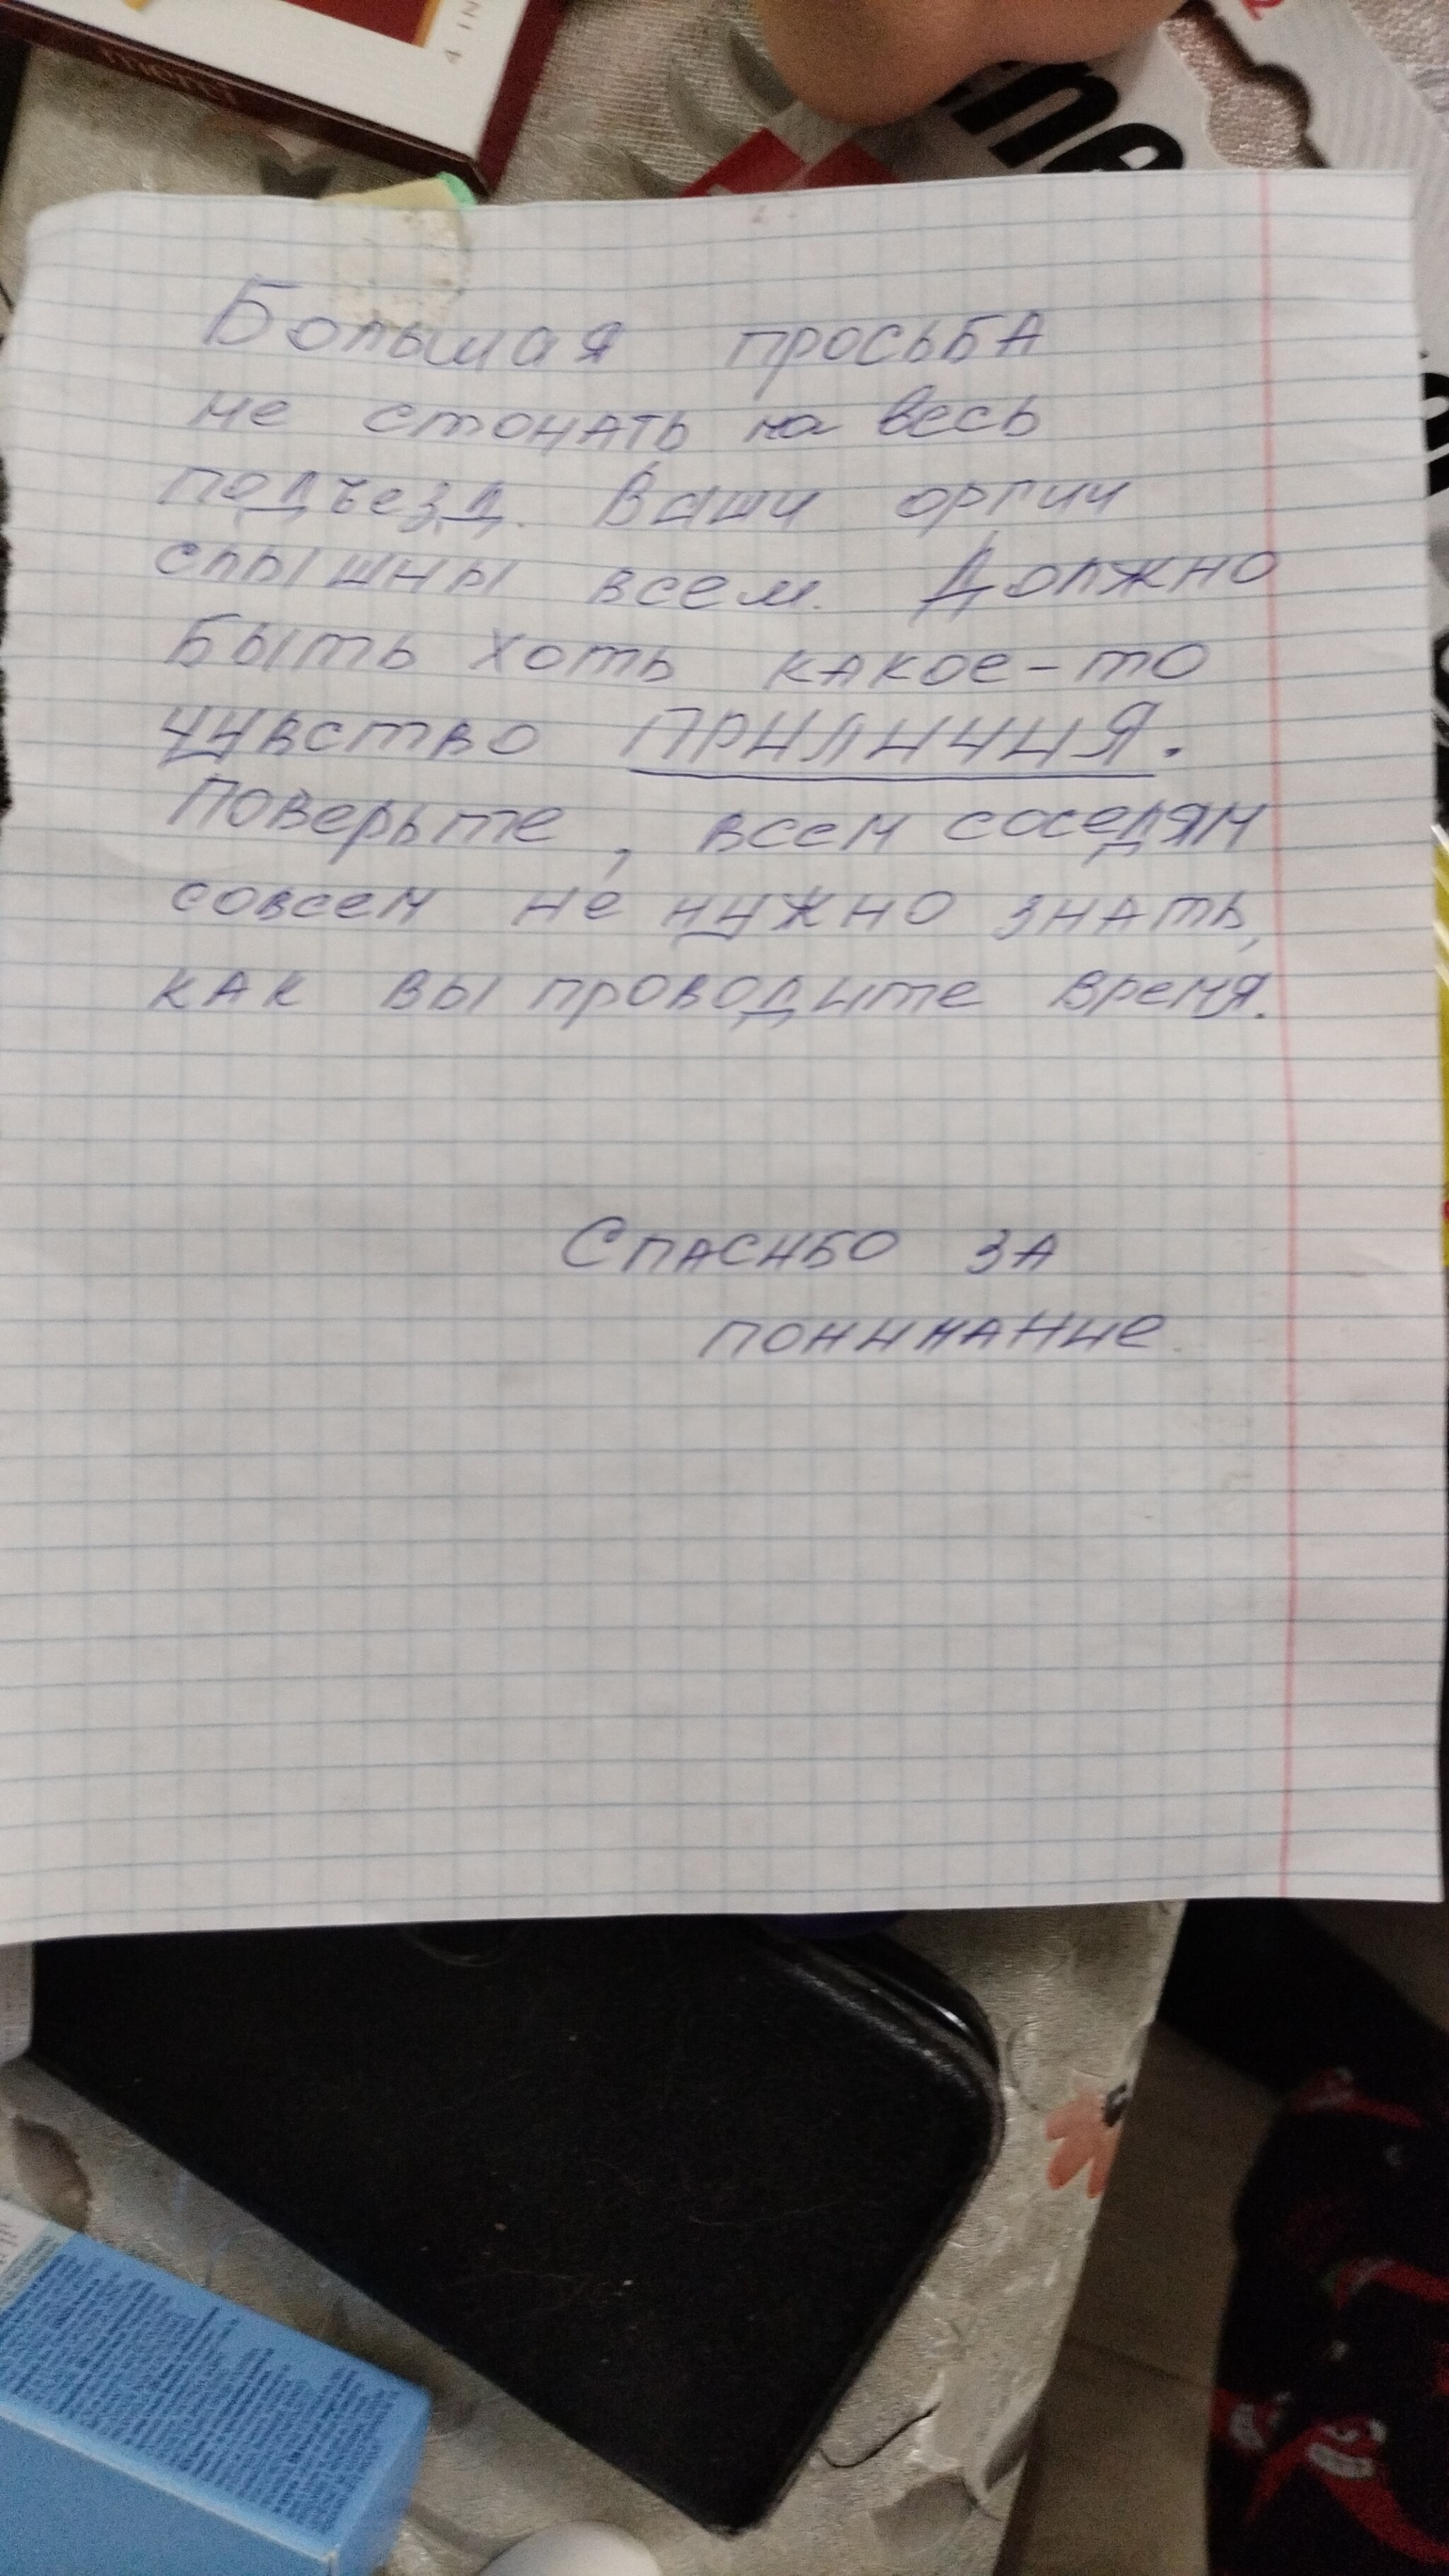 4 IN
ne
Большая просьба
не стонать на весь
подъезд. Ваши оргии
слышны всем. Должно
быть хоть какое-то
чувство ПРИЛИЧИЯ.
Поверьте, всем соседям
совсем не нужно знать,
как вы проводите время.
Спасибо за
понимание.